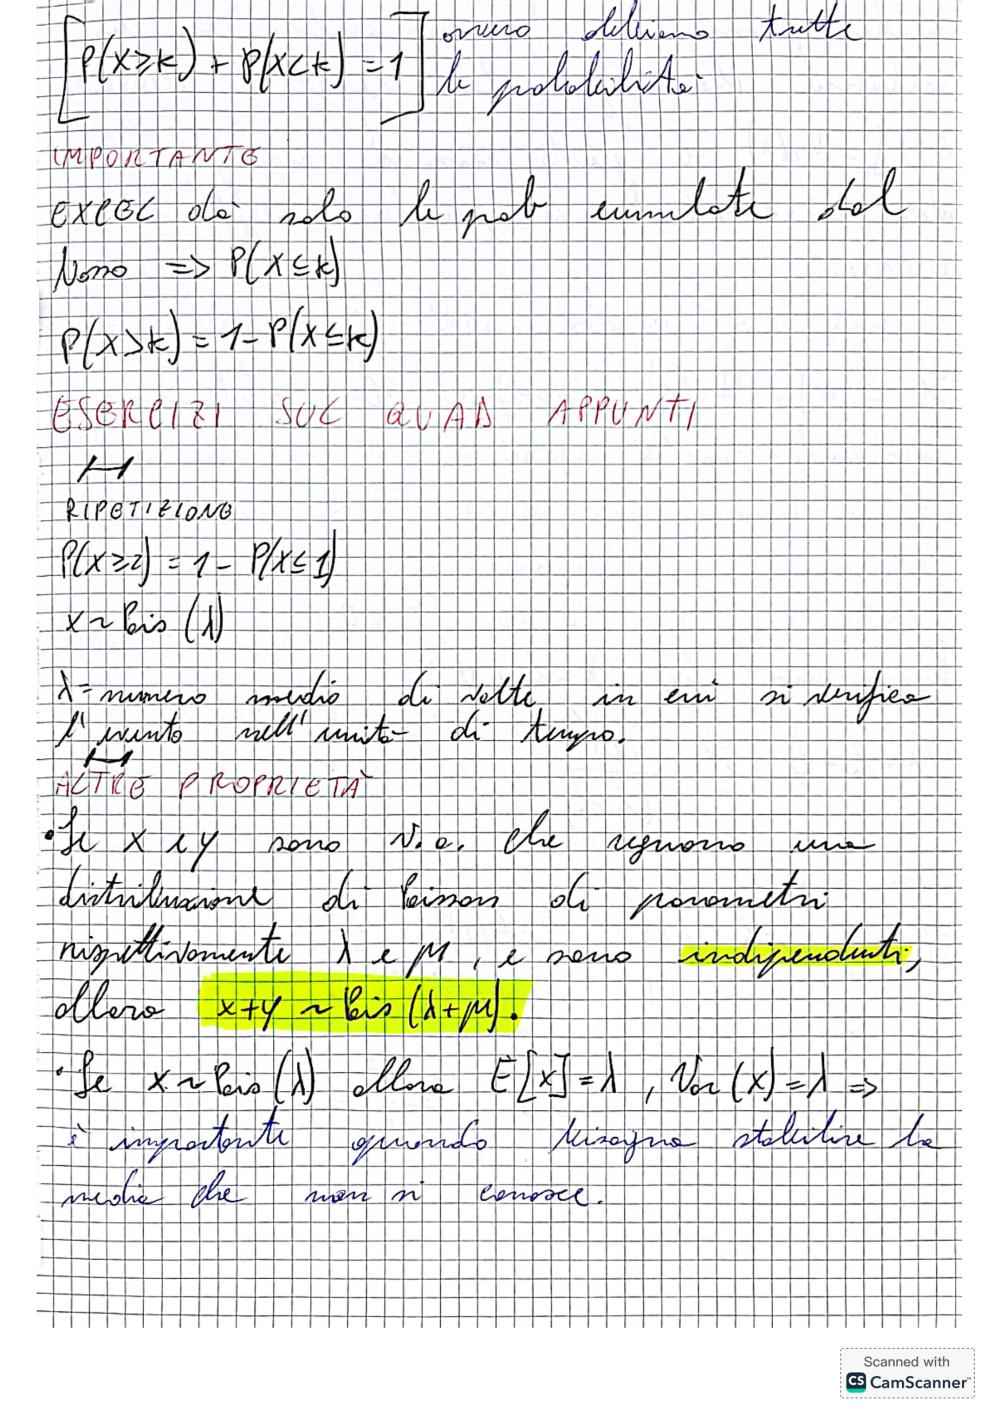 [P(X≥k) + P(X<k) = 1] ovvero abbiamo tutte
le probabilità
IMPORTANTE
EXCEL dà solo le prob cumulate dal
basso => P(X≤k)
P(X>k) = 1 - P(X≤k)
ESERCIZI SUL QUAD APPUNTI
RIPETIZIONE
P(X≥2) = 1 - P(X≤1)
X ~ Pois (λ)
λ = numero medio di volte in cui si verifica
l'evento nell'unità di tempo.
ALTRE PROPRIETÀ
• Se X e Y sono v.a. che seguono una
distribuzione di Poisson di parametri
rispettivamente λ e μ, e sono indipendenti,
allora X+Y ~ Pois (λ+μ).
• Se X ~ Pois (λ) allora E[X]=λ, Var(X)=λ =>
è importante quando bisogna stabilire la
media che non si conosce.
Scanned with
CS CamScanner